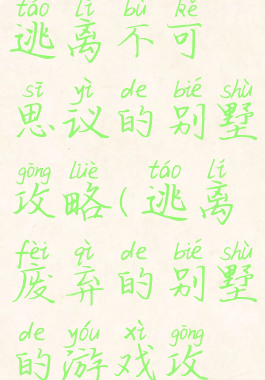 táo lí bù kě
逃离不可
sī yì de bié shù
思议的别墅
gōng lüè táo lí
攻略(逃离
fèi qì de bié shù
废弃的别墅
de yóu xì gōng
的游戏攻